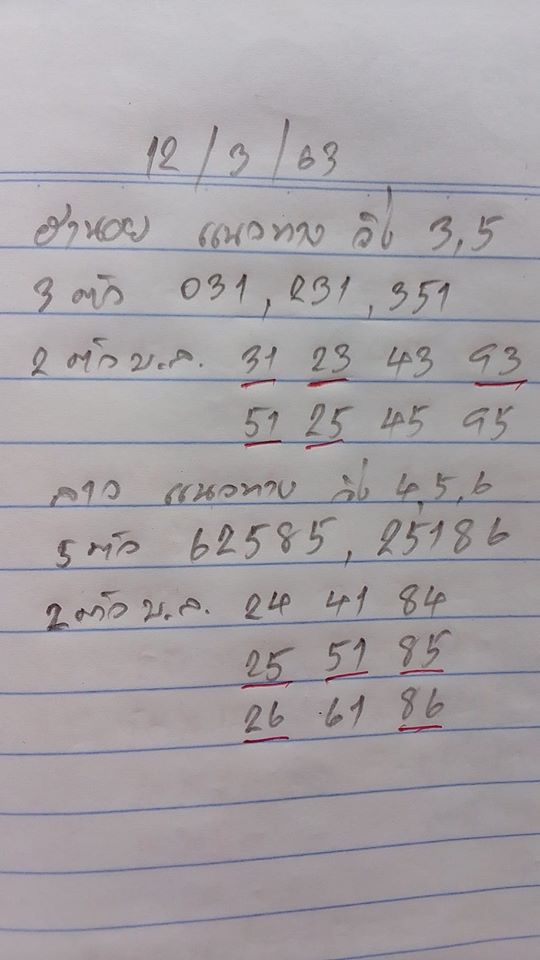 12/3/63
ฮานอย แนวทาง วิ่ง 3,5
3 ตัว 031, 231, 351
2 ตัว บ.ล. 31 23 43 93
51 25 45 95
ลาว แนวทาง วิ่ง 4,5,6
5 ตัว 62585, 25186
2 ตัว บ.ล. 24 41 84
25 51 85
26 61 86